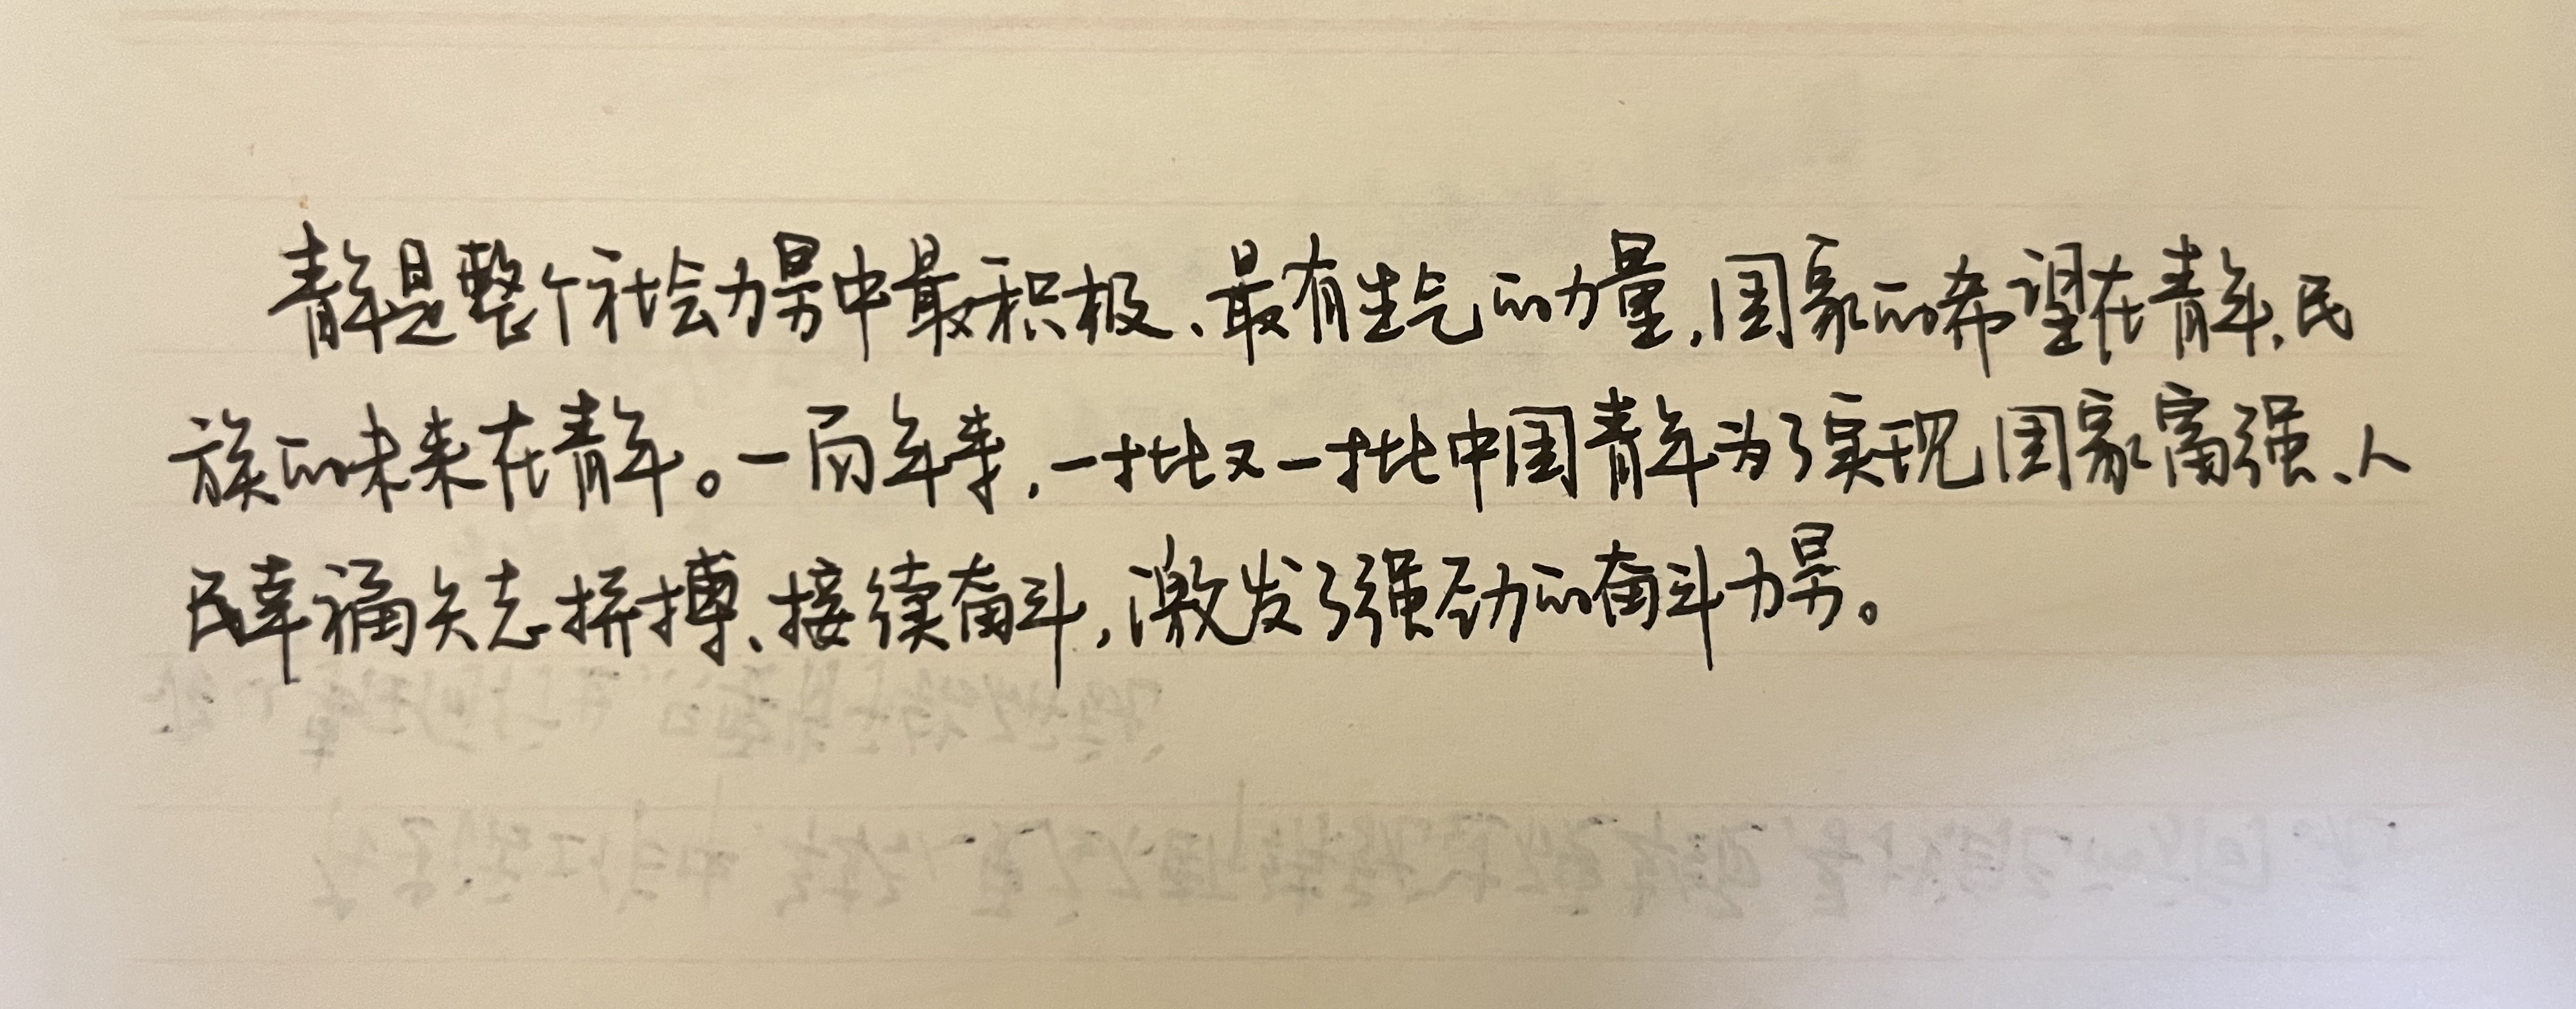 青年是整个社会力量中最积极、最有生气的力量,国家的希望在青年,民
族的未来在青年。一百年来,一批又一批中国青年为了实现国家富强、人
民幸福矢志拼搏、接续奋斗,激发了强劲的奋斗力量。